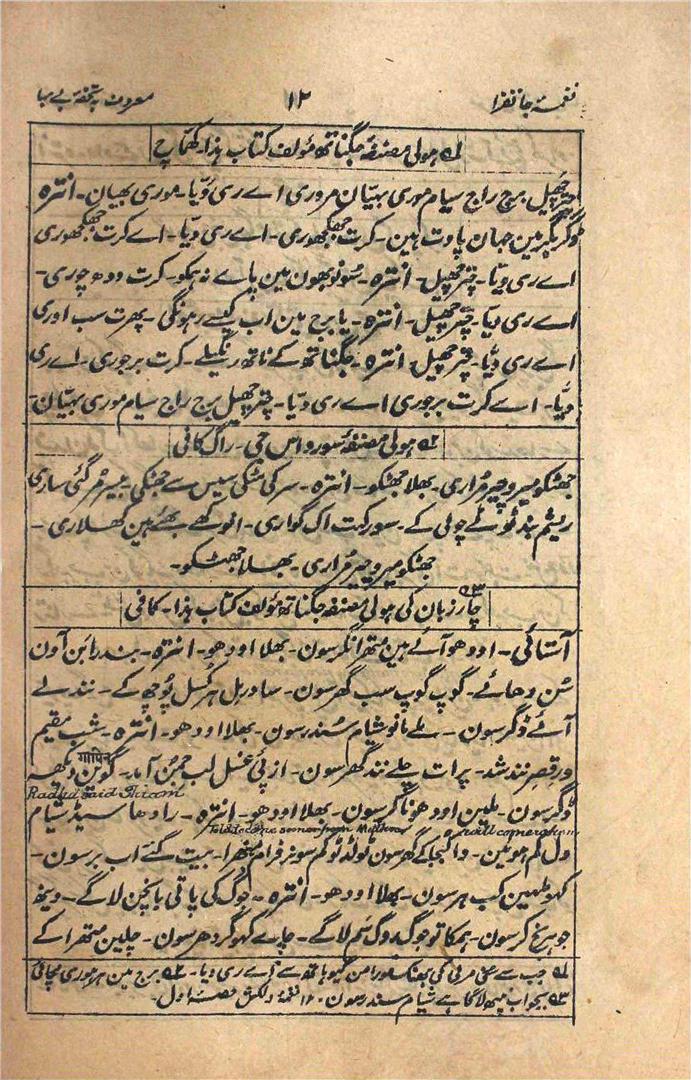 نغمۂ جانفزا ۱۲ معروف بہ تحفۂ بے بہا
ہولی مصنفۂ جگناتھ مؤلف کتاب ہذا۔ کھماچ
چتر چھیل برج راج سیام موری بہیّان مروری اے ری دَیّا۔ موری بھیان۔ انترہ
ڈگر بگر مین جہان پاوت ہین۔ کرت جھکجھوری۔ اے ری دیّا۔ اے کرت جھکجھوری
اے ری دیّا۔ چتر چھیل۔ انترہ۔ سُونو بھون مین پاے نہ ہمکو۔ کرت دودھ چوری۔
اے ری دیا۔ چتر چھیل۔ انترہ۔ یا برج مین اب کیسے رہونگی۔ پھرت سب اوری
اے ری دیّا۔ چتر چھیل۔ انترہ۔ جگناتھ کے ناتھ رنگیلے۔ کرت برجوری۔ اے ری
دیّا۔ اے کرت برجوری اے ری دیّا۔ چتر چھیل برج راج سیام موری بہیّان۔
ہولی مصنفۂ سورداس جی۔ راگ کافی
جھٹکو میرو چیر مُراری۔ بھلا جھٹکو۔ انترہ۔ سر کی مٹکی سیس سے جھٹکی۔ بیسر مُر گئی ساری
ریشم بند ٹوٹے چولی کے۔ سور کہت اک گواری۔ انوکھے بھئے ہین کھلاری۔
جھٹکو میرو چیر مُراری۔ بھلا جھٹکو۔
چار زبان کی ہولی مصنفۂ جگناتھ مؤلف کتاب ہذا۔ کافی
آستائی۔ اودھو آئے ہین متھرا نگر سون۔ بھلا اودھو۔ انترہ۔ بندرابن آون
سُن دھائے۔ گوپ گوپ سب گھر سون۔ سادر بل ہر کسل پُوچھ کے۔ نند لے
آئے ڈگر سون۔ ملے مانو شیام سُندر سون۔ بھلا اودھو۔ انترہ۔ شب مقیم
در قصرِ نند شد۔ پرات چلے نند گھر سون۔ از پئی غسل لب جمن آمد۔ گوپن دیکھ
गोपिन
Radha said Shiam
ڈگر سون۔ ملین اودھو ناگر سون۔ بھلا اودھو۔ انترہ۔ رادھا سیڈ شیام
told to come sooner from Muttra will come
وِل کم ہوئین۔ وا کُبجا کے گھر سون ٹولڈ ٹو کم سونر فرام متھرا۔ بیت گئے اب برسون۔
کہو ملہین کب ہر سون۔ بھلا اودھو۔ انترہ۔ جوگ کی پاتی بانچن لاگے۔
جو ہر بچ کر سون۔ ہمکا تو جوگ روگ سم لاگے۔ جاے کہو گردھر سون۔ چلین متھرا کے
جب سے اے ری دیا۔ برج مین ہر موری
بجواب شیام سندر سون۔ ۱۲ نغمۂ دلکش حصۂ اول۔